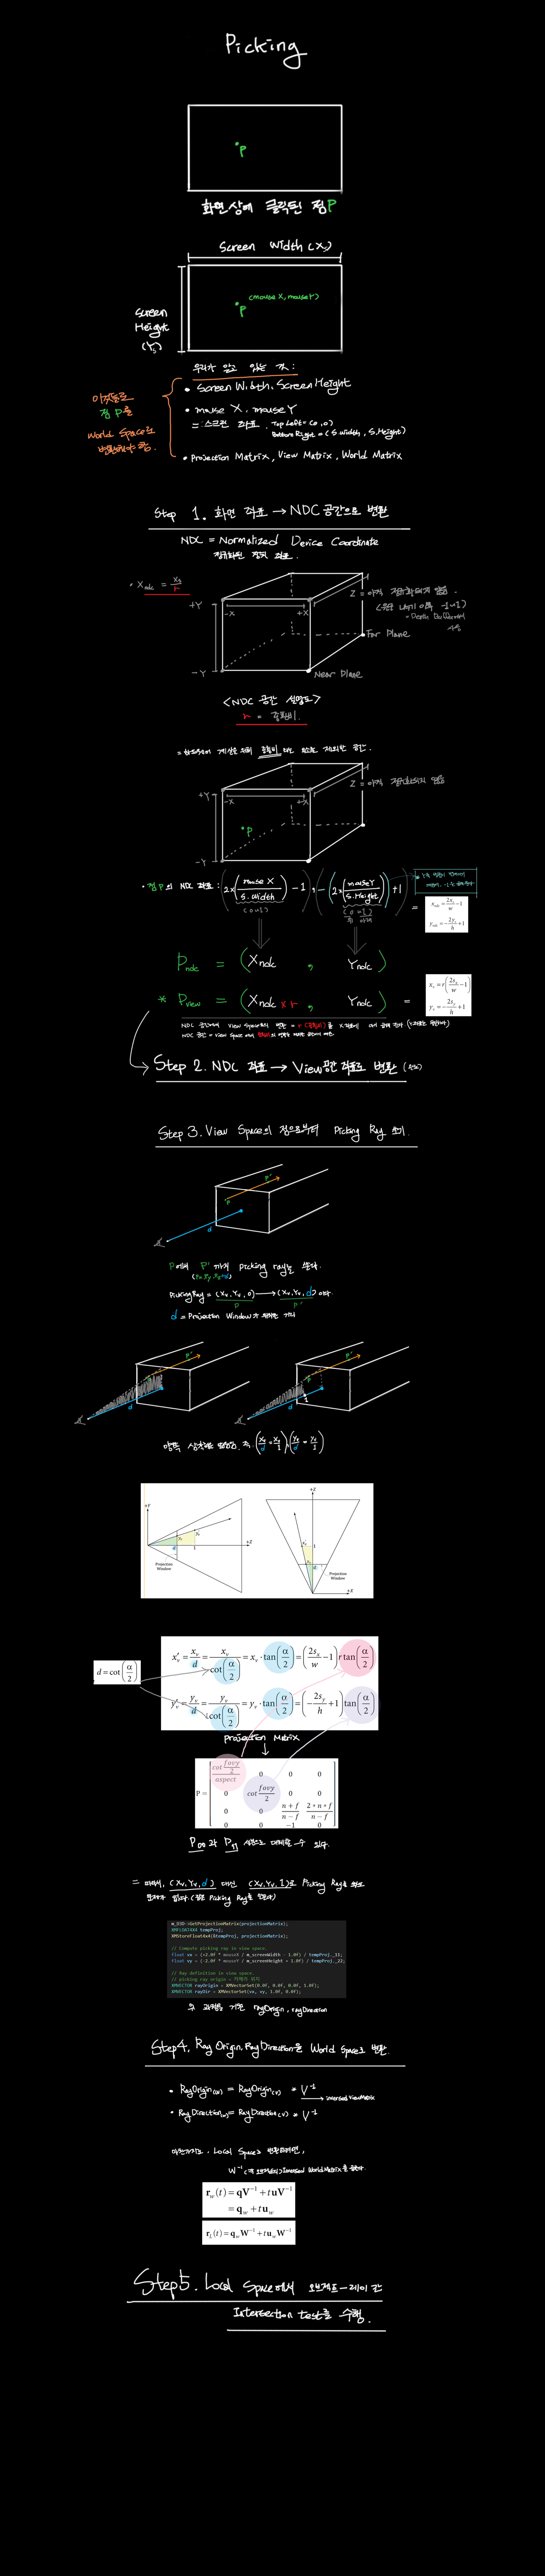 Picking
P
화면상에 클릭된 점 P
Screen Width (Xs)
(mouse X, mouse Y)
P
Screen
Height
(Ys)
우리가 알고 있는 것:
• Screen Width, Screen Height
이것들로
점 P를
World Space로
변환해야 함.
• mouse X, mouse Y
= 스크린 좌표, Top Left = (0, 0)
Bottom Right = (S.Width, S.Height)
• Projection Matrix, View Matrix, World Matrix
Step 1. 화면 좌표 → NDC 공간으로 변환
NDC = Normalized Device Coordinate
정규화된 장치 좌표.
• Xndc = Xs / r
+Y
-X
+X
-Y
Z = 아직 정규화되지 않음.
Far Plane
Near Plane
<NDC 공간 설명도>
r = 종횡비.
+Y
-X
+X
-Y
Z = 아직 정규화되지 않음
P
• 점 P의 NDC 좌표: (2x(mouse X / S.Width) - 1), (-(2x(mouse Y / S.Height)) + 1)
(0~1)
(0~1)
=
x_ndc = 2s_x/w - 1
y_ndc = -2s_y/h + 1
Pndc = (Xndc, Yndc)
* Pview = (Xndc x r, Yndc)
=
x_v = r(2s_x/w - 1)
y_v = -2s_y/h + 1
Step 2. NDC 좌표 → View공간 좌표로 변환 (완료)
Step 3. View Space의 점으로부터 Picking Ray 쏘기.
P
P'
d
P에서 P' 까지 picking ray를 쏜다.
Picking Ray = (Xv, Yv, 0) → (Xv, Yv, d) 이다.
P
P'
d = Projection Window가 위치한 거리
P'
d
P'
1
d
+Y
+Z
d
1
Projection
Window
+Z
1
d
Projection
Window
+X
d = cot(α/2)
x'_v = x_v/d = x_v/cot(α/2) = x_v · tan(α/2) = (2s_x/w - 1) r tan(α/2)
y'_v = y_v/d = y_v/cot(α/2) = y_v · tan(α/2) = (-2s_y/h + 1) tan(α/2)
Projection Matrix
P =
cot fovy/2 / aspect 0 0 0
0 cot fovy/2 0 0
0 0 n+f/n-f 2*n*f/n-f
0 0 -1 0
P00 과 P11 성분으로 대체할 수 있다.
= 따라서, (Xv, Yv, d) 대신 (Xv, Yv, 1)로 Picking Ray를 쏴도
문제가 없다. (같은 Picking Ray를 얻는다)
m_D3D->GetProjectionMatrix(projectionMatrix);
XMFLOAT4X4 tempProj;
XMStoreFloat4x4(&tempProj, projectionMatrix);
// Compute picking ray in view space.
float vx = (+2.0f * mouseX / m_screenWidth - 1.0f) / tempProj._11;
float vy = (-2.0f * mouseY / m_screenHeight + 1.0f) / tempProj._22;
// Ray definition in view space.
// picking ray origin = 카메라 위치
XMVECTOR rayOrigin = XMVectorSet(0.0f, 0.0f, 0.0f, 1.0f);
XMVECTOR rayDir = XMVectorSet(vx, vy, 1.0f, 0.0f);
위 과정을 거친 rayOrigin, rayDirection
Step4. Ray Origin, Ray Direction을 World Space로 변환.
• RayOrigin(w) = RayOrigin(v) * V⁻¹
→ inversed ViewMatrix
• RayDirection(w) = RayDirection(v) * V⁻¹
마찬가지로, Local Space로 변환하려면,
W⁻¹ (각 오브젝트의) inversed WorldMatrix를 곱한다.
r_w(t) = qV⁻¹ + tuV⁻¹
= q_w + tu_w
r_L(t) = q_wW⁻¹ + tu_wW⁻¹
Step5. Local Space에서 오브젝트-레이 간
Intersection test를 수행.